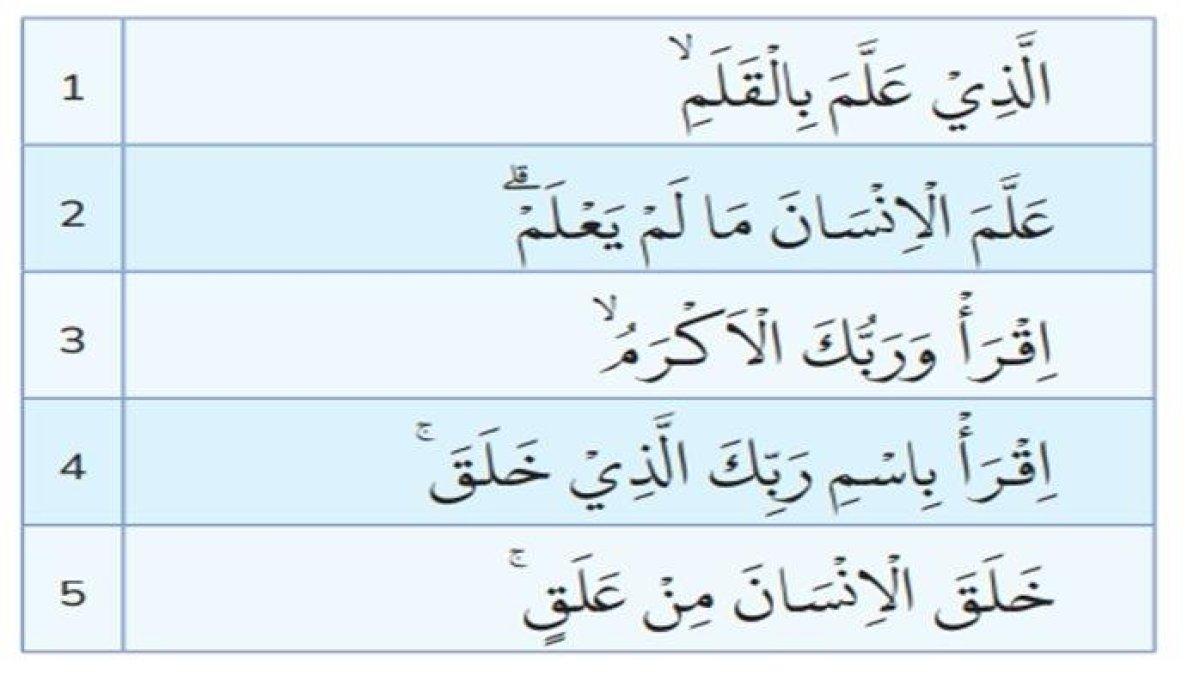 1 الَّذِيْ عَلَّمَ بِالْقَلَمِۙ
2 عَلَّمَ الْاِنْسَانَ مَا لَمْ يَعْلَمْۗ
3 اِقْرَأْ وَرَبُّكَ الْاَكْرَمُۙ
4 اِقْرَأْ بِاسْمِ رَبِّكَ الَّذِيْ خَلَقَۚ
5 خَلَقَ الْاِنْسَانَ مِنْ عَلَقٍۚ